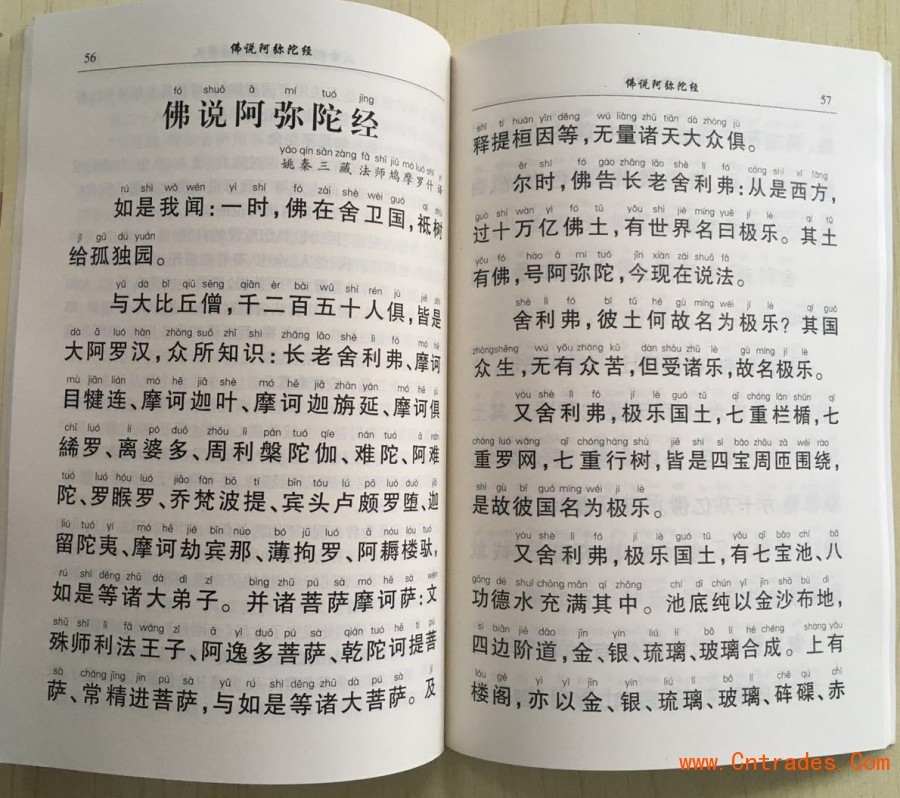 56
佛说阿弥陀经
fó shuō ā mí tuó jīng
佛说阿弥陀经
yáo qín sān zàng fǎ shī jiū mó luó shí yì
姚秦三藏法师鸠摩罗什译
rú shì wǒ wén yì shí fó zài shè wèi guó qí shù
如是我闻:一时,佛在舍卫国,祇树
jǐ gū dú yuán
给孤独园。
yǔ dà bǐ qiū sēng qiān èr bǎi wǔ shí rén jù jiē shì
与大比丘僧,千二百五十人俱,皆是
dà ā luó hàn zhòng suǒ zhī shí zhǎng lǎo shè lì fó mó hē
大阿罗汉,众所知识:长老舍利弗、摩诃
mù jiān lián mó hē jiā shè mó hē jiā zhān yán mó hē jù
目犍连、摩诃迦叶、摩诃迦旃延、摩诃俱
chī luó lí pó duō zhōu lì pán tuó qié nán tuó ā nán
絺罗、离婆多、周利槃陀伽、难陀、阿难
tuó luó hóu luó jiāo fàn bō tí bīn tóu lú pō luó duò jiā
陀、罗睺罗、乔梵波提、宾头卢颇罗堕、迦
liú tuó yí mó hē jié bīn nuó bó jū luó ā nóu lóu tuó
留陀夷、摩诃劫宾那、薄拘罗、阿㝹楼驮,
rú shì děng zhū dà dì zǐ bìng zhū pú sà mó hē sà wén
如是等诸大弟子。并诸菩萨摩诃萨:文
shū shī lì fǎ wáng zǐ ā yì duō pú sà qián tuó hē tí pú
殊师利法王子、阿逸多菩萨、乾陀诃提菩
sà cháng jīng jìn pú sà yǔ rú shì děng zhū dà pú sà jí
萨、常精进菩萨,与如是等诸大菩萨。及
佛说阿弥陀经
57
shì tí huán yīn děng wú liàng zhū tiān dà zhòng jù
释提桓因等,无量诸天大众俱。
ěr shí fó gào zhǎng lǎo shè lì fó cóng shì xī fāng
尔时,佛告长老舍利弗:从是西方,
guò shí wàn yì fó tǔ yǒu shì jiè míng yuē jí lè qí tǔ
过十万亿佛土,有世界名曰极乐。其土
yǒu fó hào ā mí tuó jīn xiàn zài shuō fǎ
有佛,号阿弥陀,今现在说法。
shè lì fó bǐ tǔ hé gù míng wéi jí lè qí guó
舍利弗,彼土何故名为极乐?其国
zhòngshēng wú yǒu zhòng kǔ dàn shòu zhū lè gù míng jí lè
众生,无有众苦,但受诸乐,故名极乐。
yòu shè lì fó jí lè guó tǔ qī chóng lán shǔn qī
又舍利弗,极乐国土,七重栏楯,七
chóng luó wǎng qī chóng háng shù jiē shì sì bǎo zhōu zā wéi rào
重罗网,七重行树,皆是四宝周匝围绕,
shì gù bǐ guó míng wéi jí lè
是故彼国名为极乐。
yòu shè lì fó jí lè guó tǔ yǒu qī bǎo chí bā
又舍利弗,极乐国土,有七宝池、八
gōng dé shuǐ chōng mǎn qí zhōng chí dǐ chún yǐ jīn shā bù dì
功德水充满其中。池底纯以金沙布地,
sì biān jiē dào jīn yín liú lí bō lí hé chéng shàng yǒu
四边阶道,金、银、琉璃、玻璃合成。上有
lóu gé yì yǐ jīn yín liú lí bō lí chē qú chì
楼阁,亦以金、银、琉璃、玻璃、砗磲、赤
www.Cntrades.Com